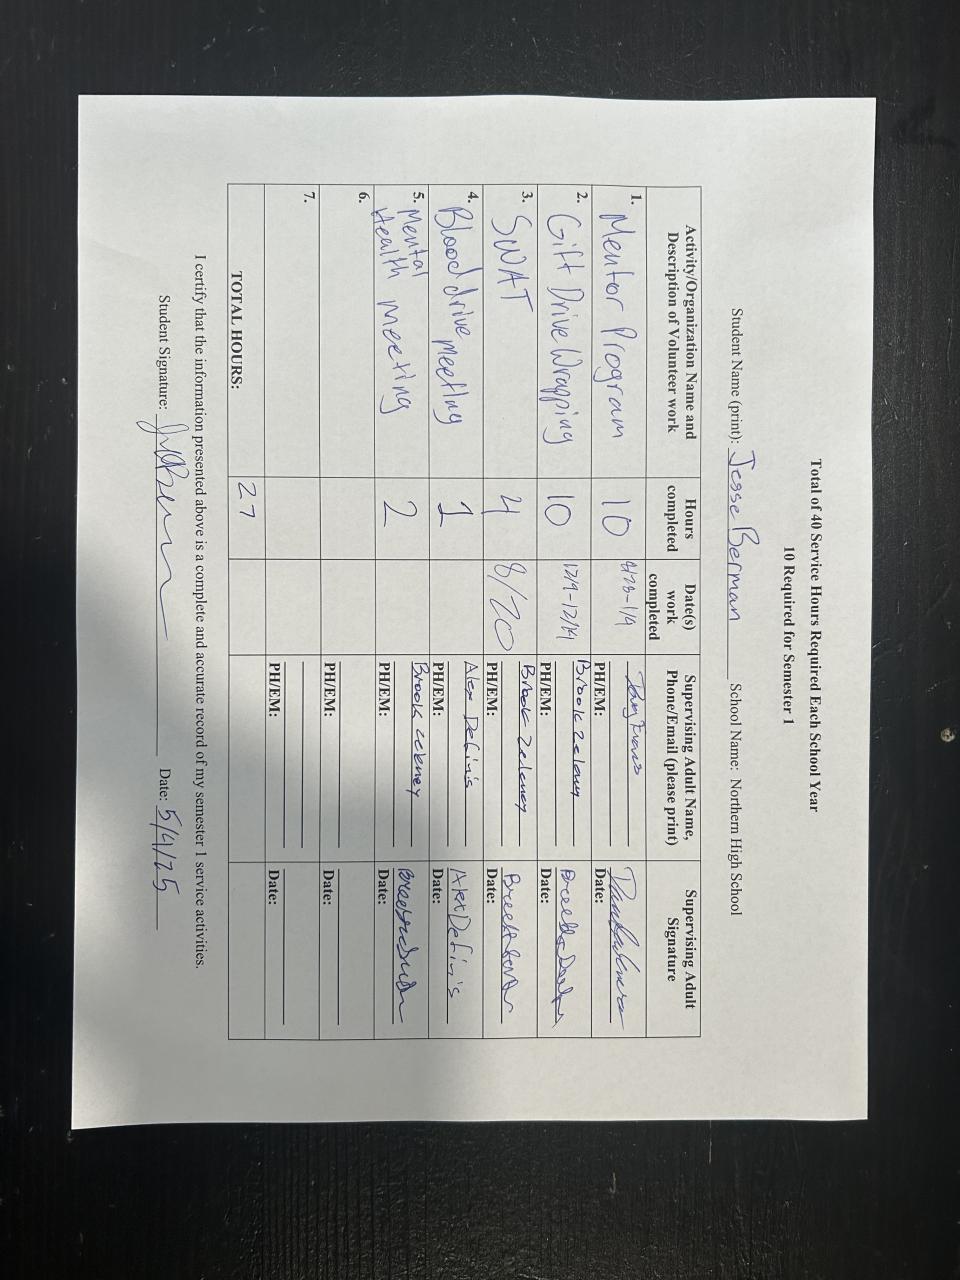 Total of 40 Service Hours Required Each School Year
10 Required for Semester 1
Student Name (print): Jesse Berman School Name: Northern High School
Activity/Organization Name and Description of Volunteer work
Hours completed
Date(s) work completed
Supervising Adult Name, Phone/Email (please print)
Supervising Adult Signature
1. Mentor Program
10
PH/EM:
Date:
2. Gift Drive Wrapping
10
12/9-12/14
Brook
PH/EM:
Date:
3. SWAT
4
8/20
Brook Zeleney
PH/EM:
Date:
4. Blood drive meeting
1
Alex Defin's
PH/EM:
Alex Defin's
Date:
5. Mental
Health meeting
2
Brook
PH/EM:
Date:
6.
PH/EM:
Date:
7.
PH/EM:
Date:
TOTAL HOURS:
27
I certify that the information presented above is a complete and accurate record of my semester 1 service activities.
Student Signature: Date: 5/9/25